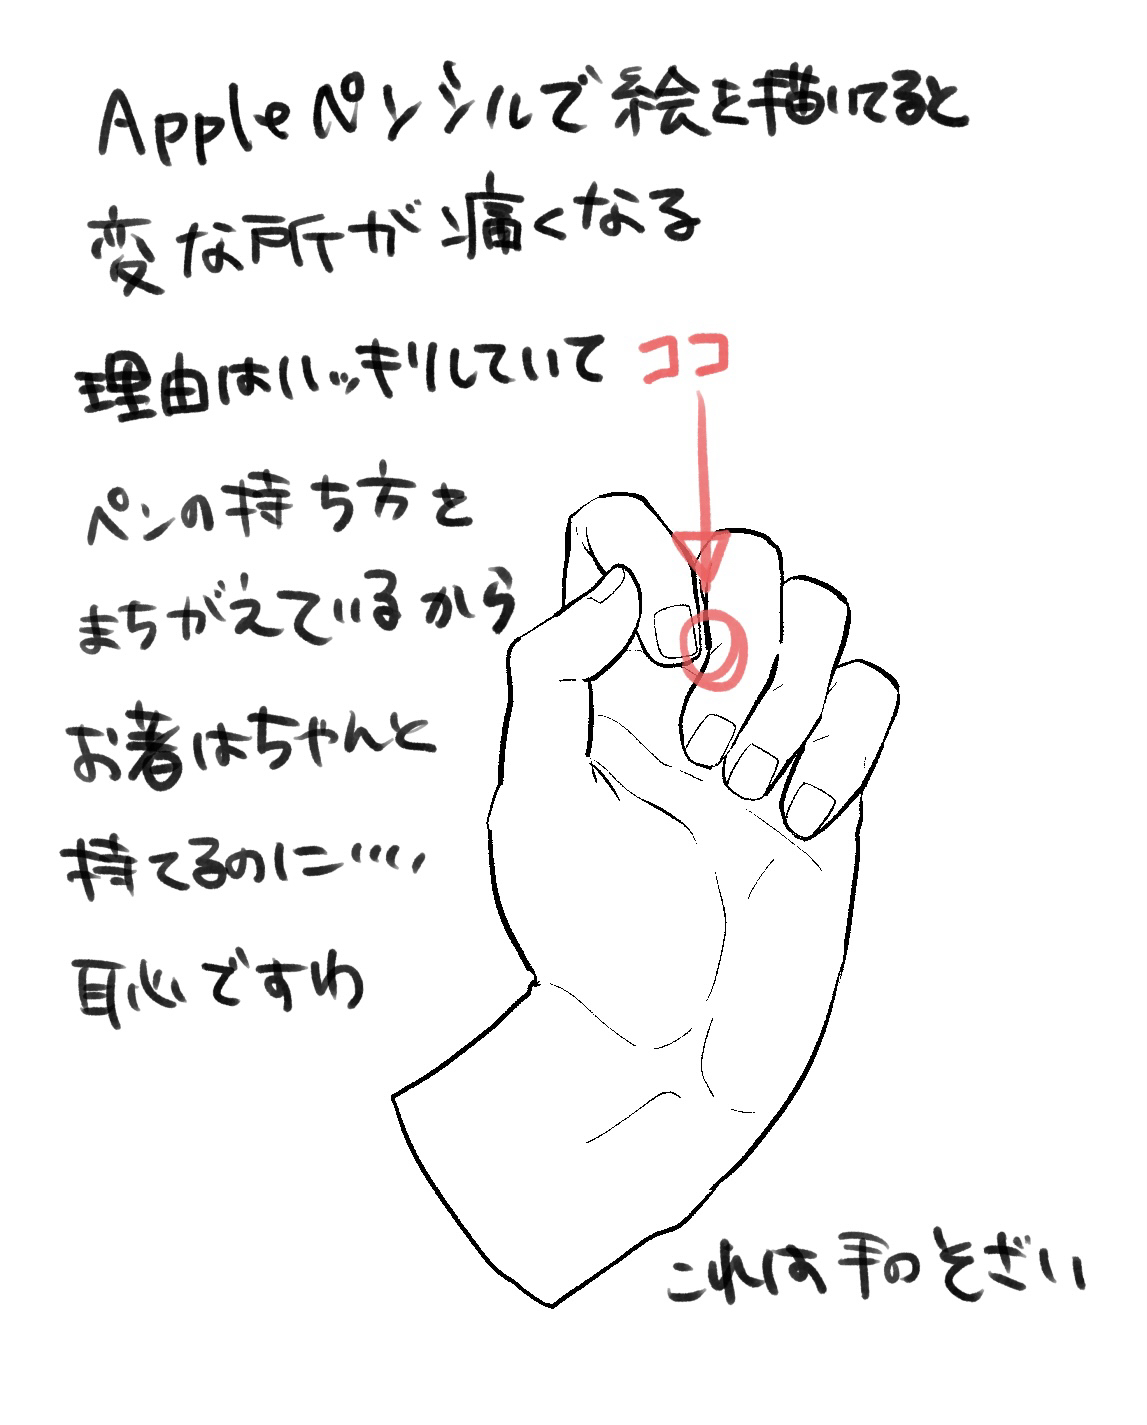 Appleペンシルで絵を描いてると
変な所が痛くなる
理由はハッキリしていて ココ
ペンの持ち方を
まちがえているから
お箸はちゃんと
持てるのに・・・・
恥ですわ
これは手のそざい